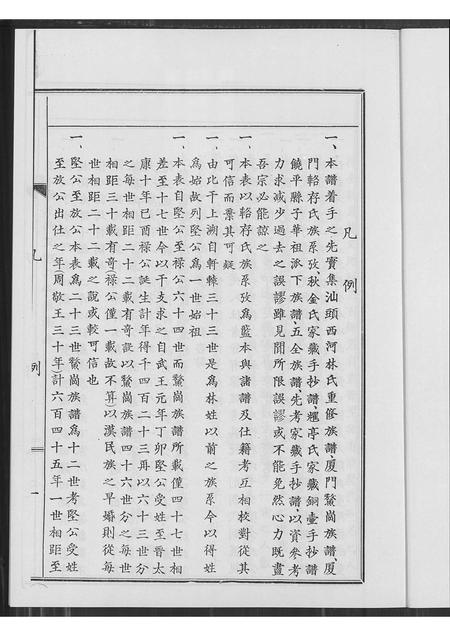 凡例
一、本譜着手之先實集汕頭西河林氏重修族譜、廈門鰲崗族譜、廈
門輅存氏族系攷秋金氏家藏手抄譜、輝亭氏家藏銅壷手抄譜
饒平縣子華祖派下族譜、五全族譜先考家藏手抄譜、以資參考
力求減少過去之誤謬雖見聞所限誤謬或不能免然心力既盡
吾宗必能諒之
一、本表以輅存氏族系攷爲藍本與諸譜及仕籍考互相校對從其
可信而棄其可疑
一、由比干上溯自軒轅三十三世是爲林姓以前之族系今以得姓
爲始故列堅公爲一世始祖
一、本表自堅公至祿公六十四世而鰲崗族譜所載僅四十七世相
差至十七世今以干支求之自武王元年丁卯堅公受姓至晉太
康十年己酉祿公誕生計年得千四百二十三再以六十三世分
之每世相距二十二載有奇設以鰲崗族譜四十六世分之每世
相距三十載有奇祿公僅一載故不算以漢民族之早婚則從每
世相距二十二載之說或較可信也
一、堅公至放公本表爲二十三世鰲崗族譜爲十二世考堅公受姓
至放公出仕之年(周敬王三十年)計六百四十五年一世相距至
凡 例 一